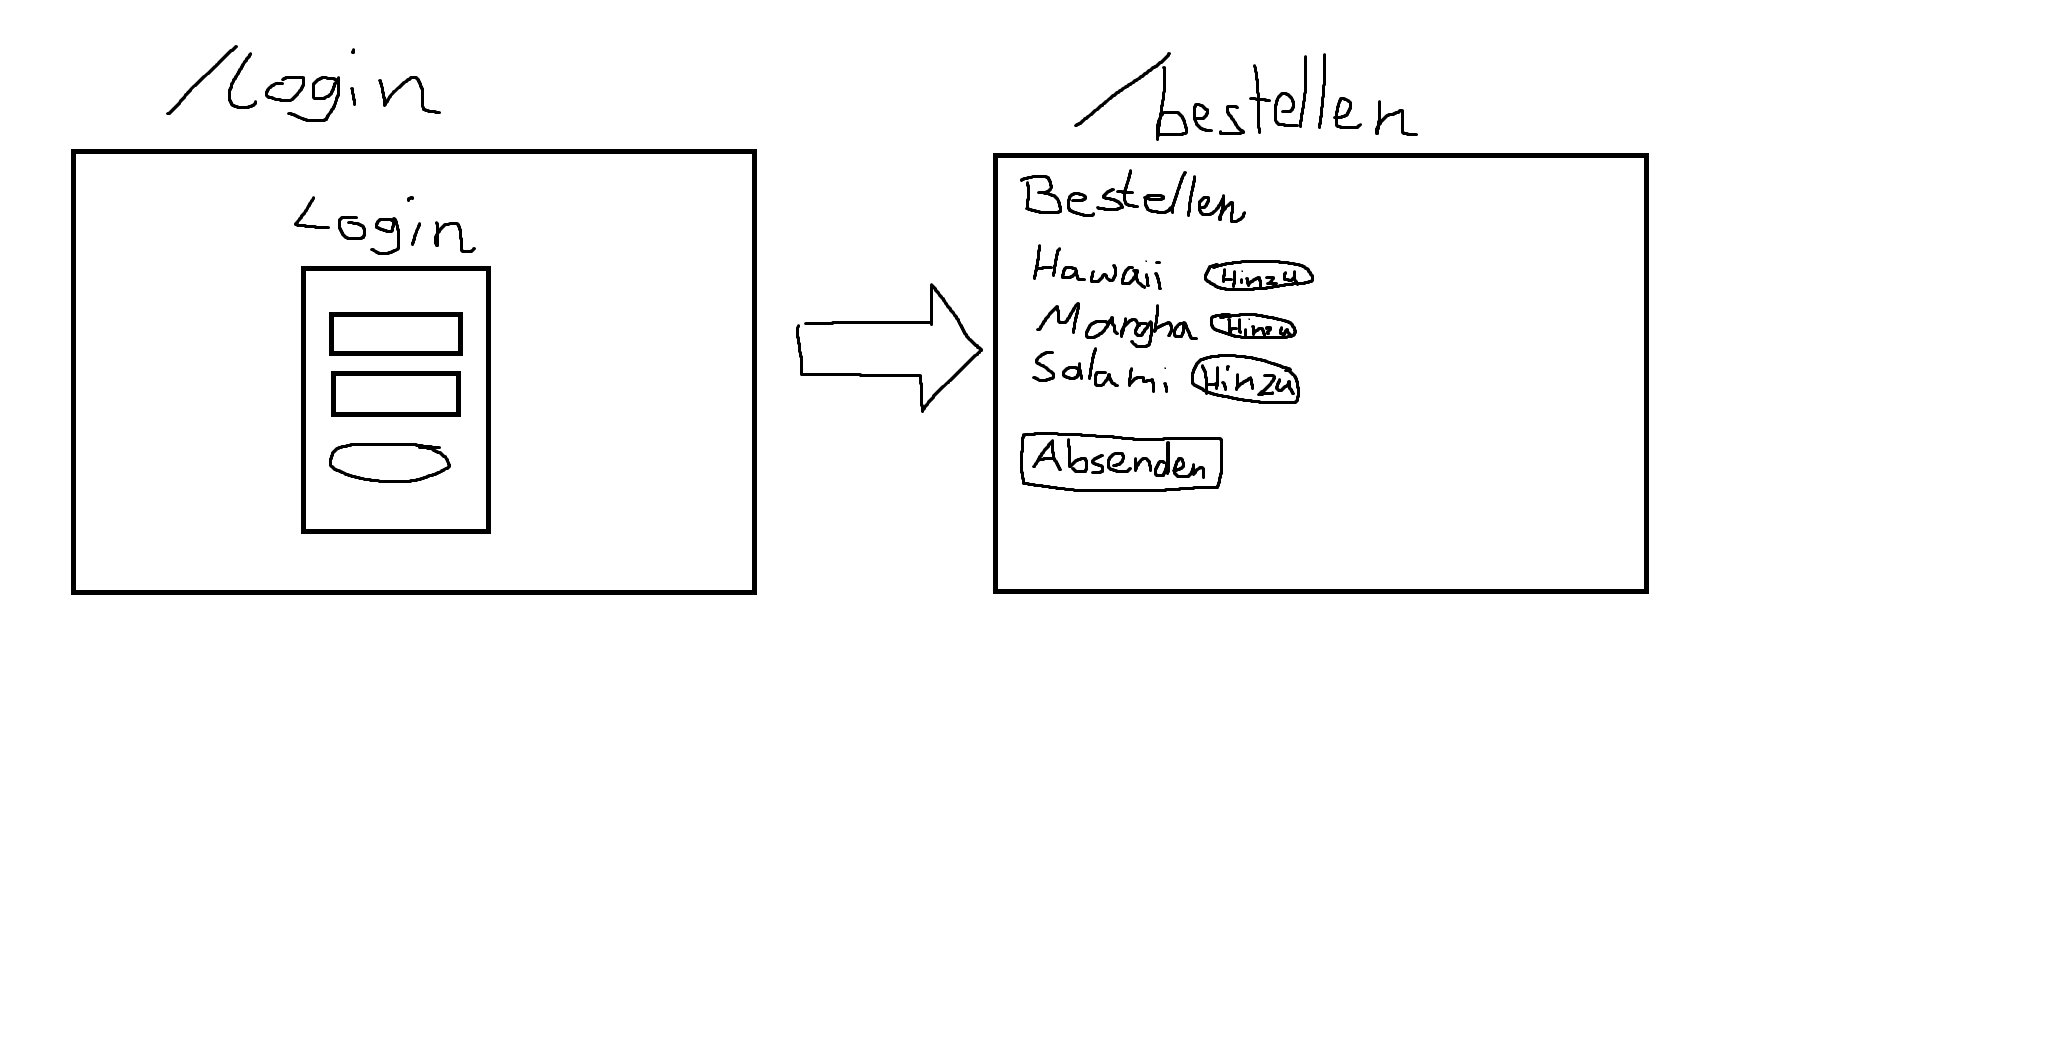 /login
Login
/bestellen
Bestellen
Hawaii Hinzu
Margha Hinzu
Salami Hinzu
Absenden